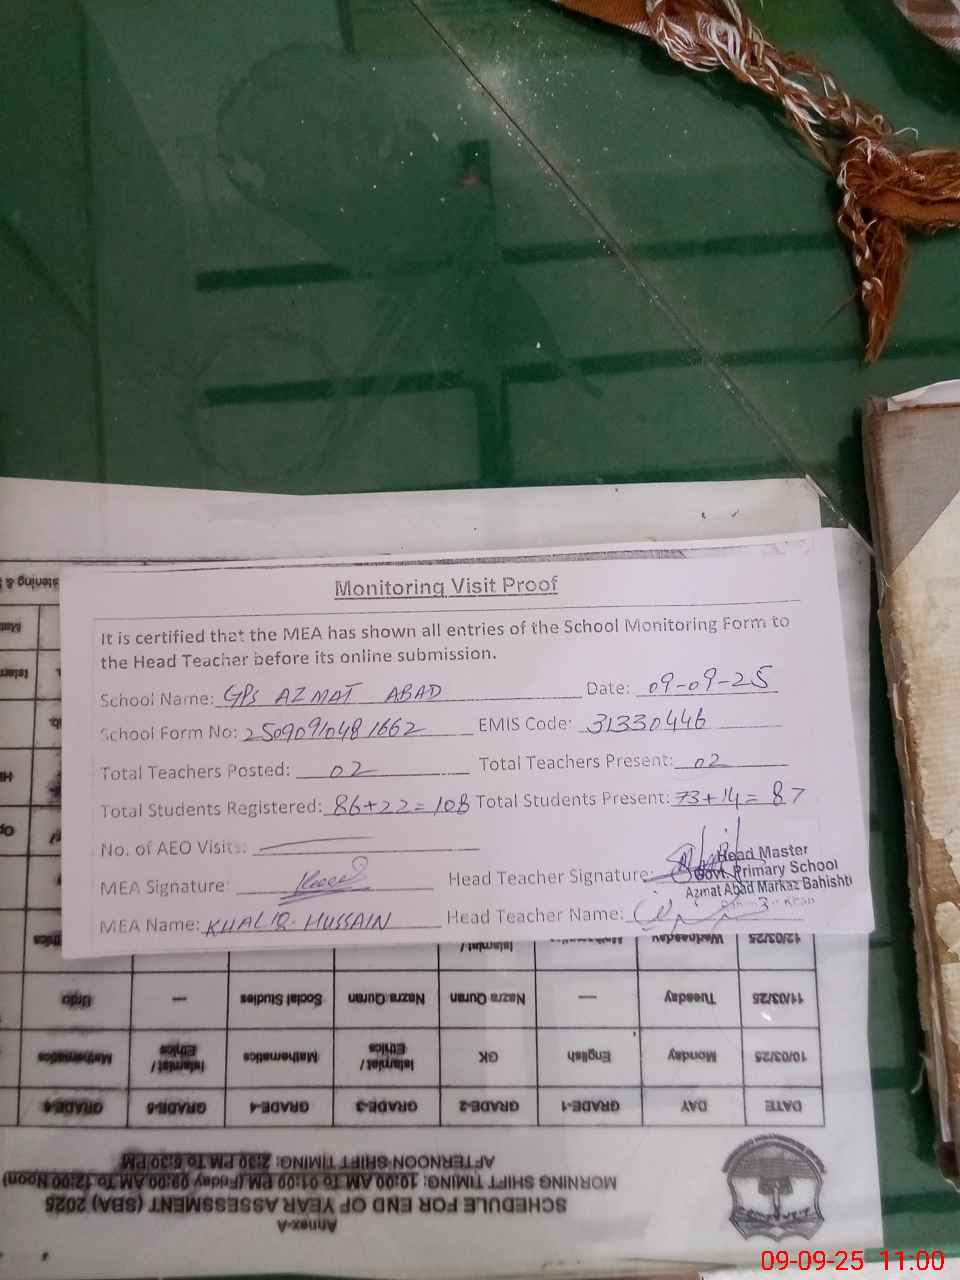 Monitoring Visit Proof
It is certified that the MEA has shown all entries of the School Monitoring Form to
the Head Teacher before its online submission.
School Name: GPS AZMAT ABAD Date: 09-09-25
School Form No: 2509091048 1662 EMIS Code: 31330446
Total Teachers Posted: 02 Total Teachers Present: 02
Total Students Registered: 86+22=108 Total Students Present: 73+14=87
No. of AEO Visits:
MEA Signature: Head Teacher Signature:
Head Master
Govt. Primary School
Azmat Abad Markaz Bahishti
MEA Name: KHALIQ HUSSAIN Head Teacher Name:
Annex-A
SCHEDULE FOR END OF YEAR ASSESSMENT (SBA) 2025
MORNING SHIFT TIMING: 10:00 AM TO 01:00 PM (Friday 09:00 AM To 12:00 Noon)
AFTERNOON SHIFT TIMING: 2:30 PM To 5:30 PM
DATE DAY GRADE-1 GRADE-2 GRADE-3 GRADE-4 GRADE-5
10/03/25 Monday English GK Islamiat / Ethics Mathematics Islamiat / Ethics Mathematics
11/03/25 Tuesday — Nazra Quran Nazra Quran Social Studies — Urdu
12/03/25 Wednesday Mathematics Islamiat /
09-09-25 11:00